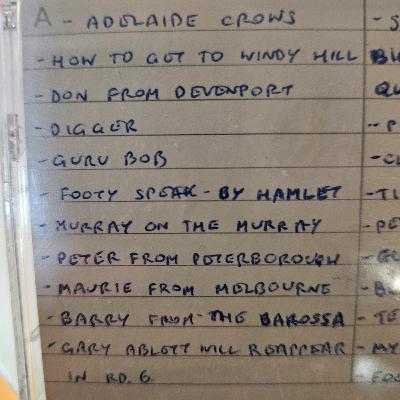 A - ADELAIDE CROWS
- HOW TO GET TO WINDY HILL
- DON FROM DEVENPORT
- DIGGER
- GURU BOB
- FOOTY SPEAK - BY HAMLET
- MURRAY ON THE MURRAY
- PETER FROM PETERBOROUGH
- MAURIE FROM MELBOURNE
- BARRY FROM THE BAROSSA
- GARY ABLETT WILL REAPPEAR
IN RD. 6.